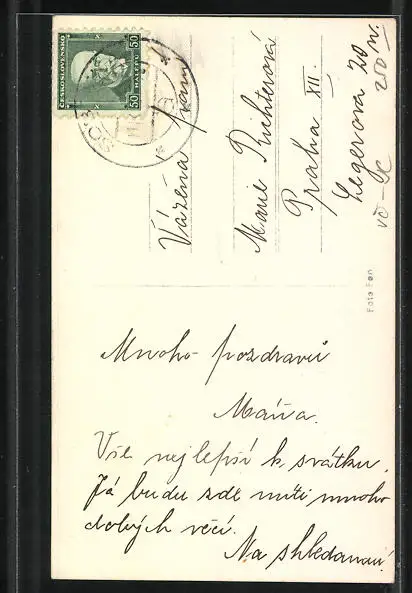 ČESKOSLOVENSKO
50 HALÉŘŮ 50
Vážená paní
Marie Richterová
Praha XII.
Legerova 20 n.
Foto Fon
Mnoho pozdravů
Máňa.
Vše nejlepší k svátku.
Já budu zde míti mnoho
dobrých věcí.
Na shledanou!